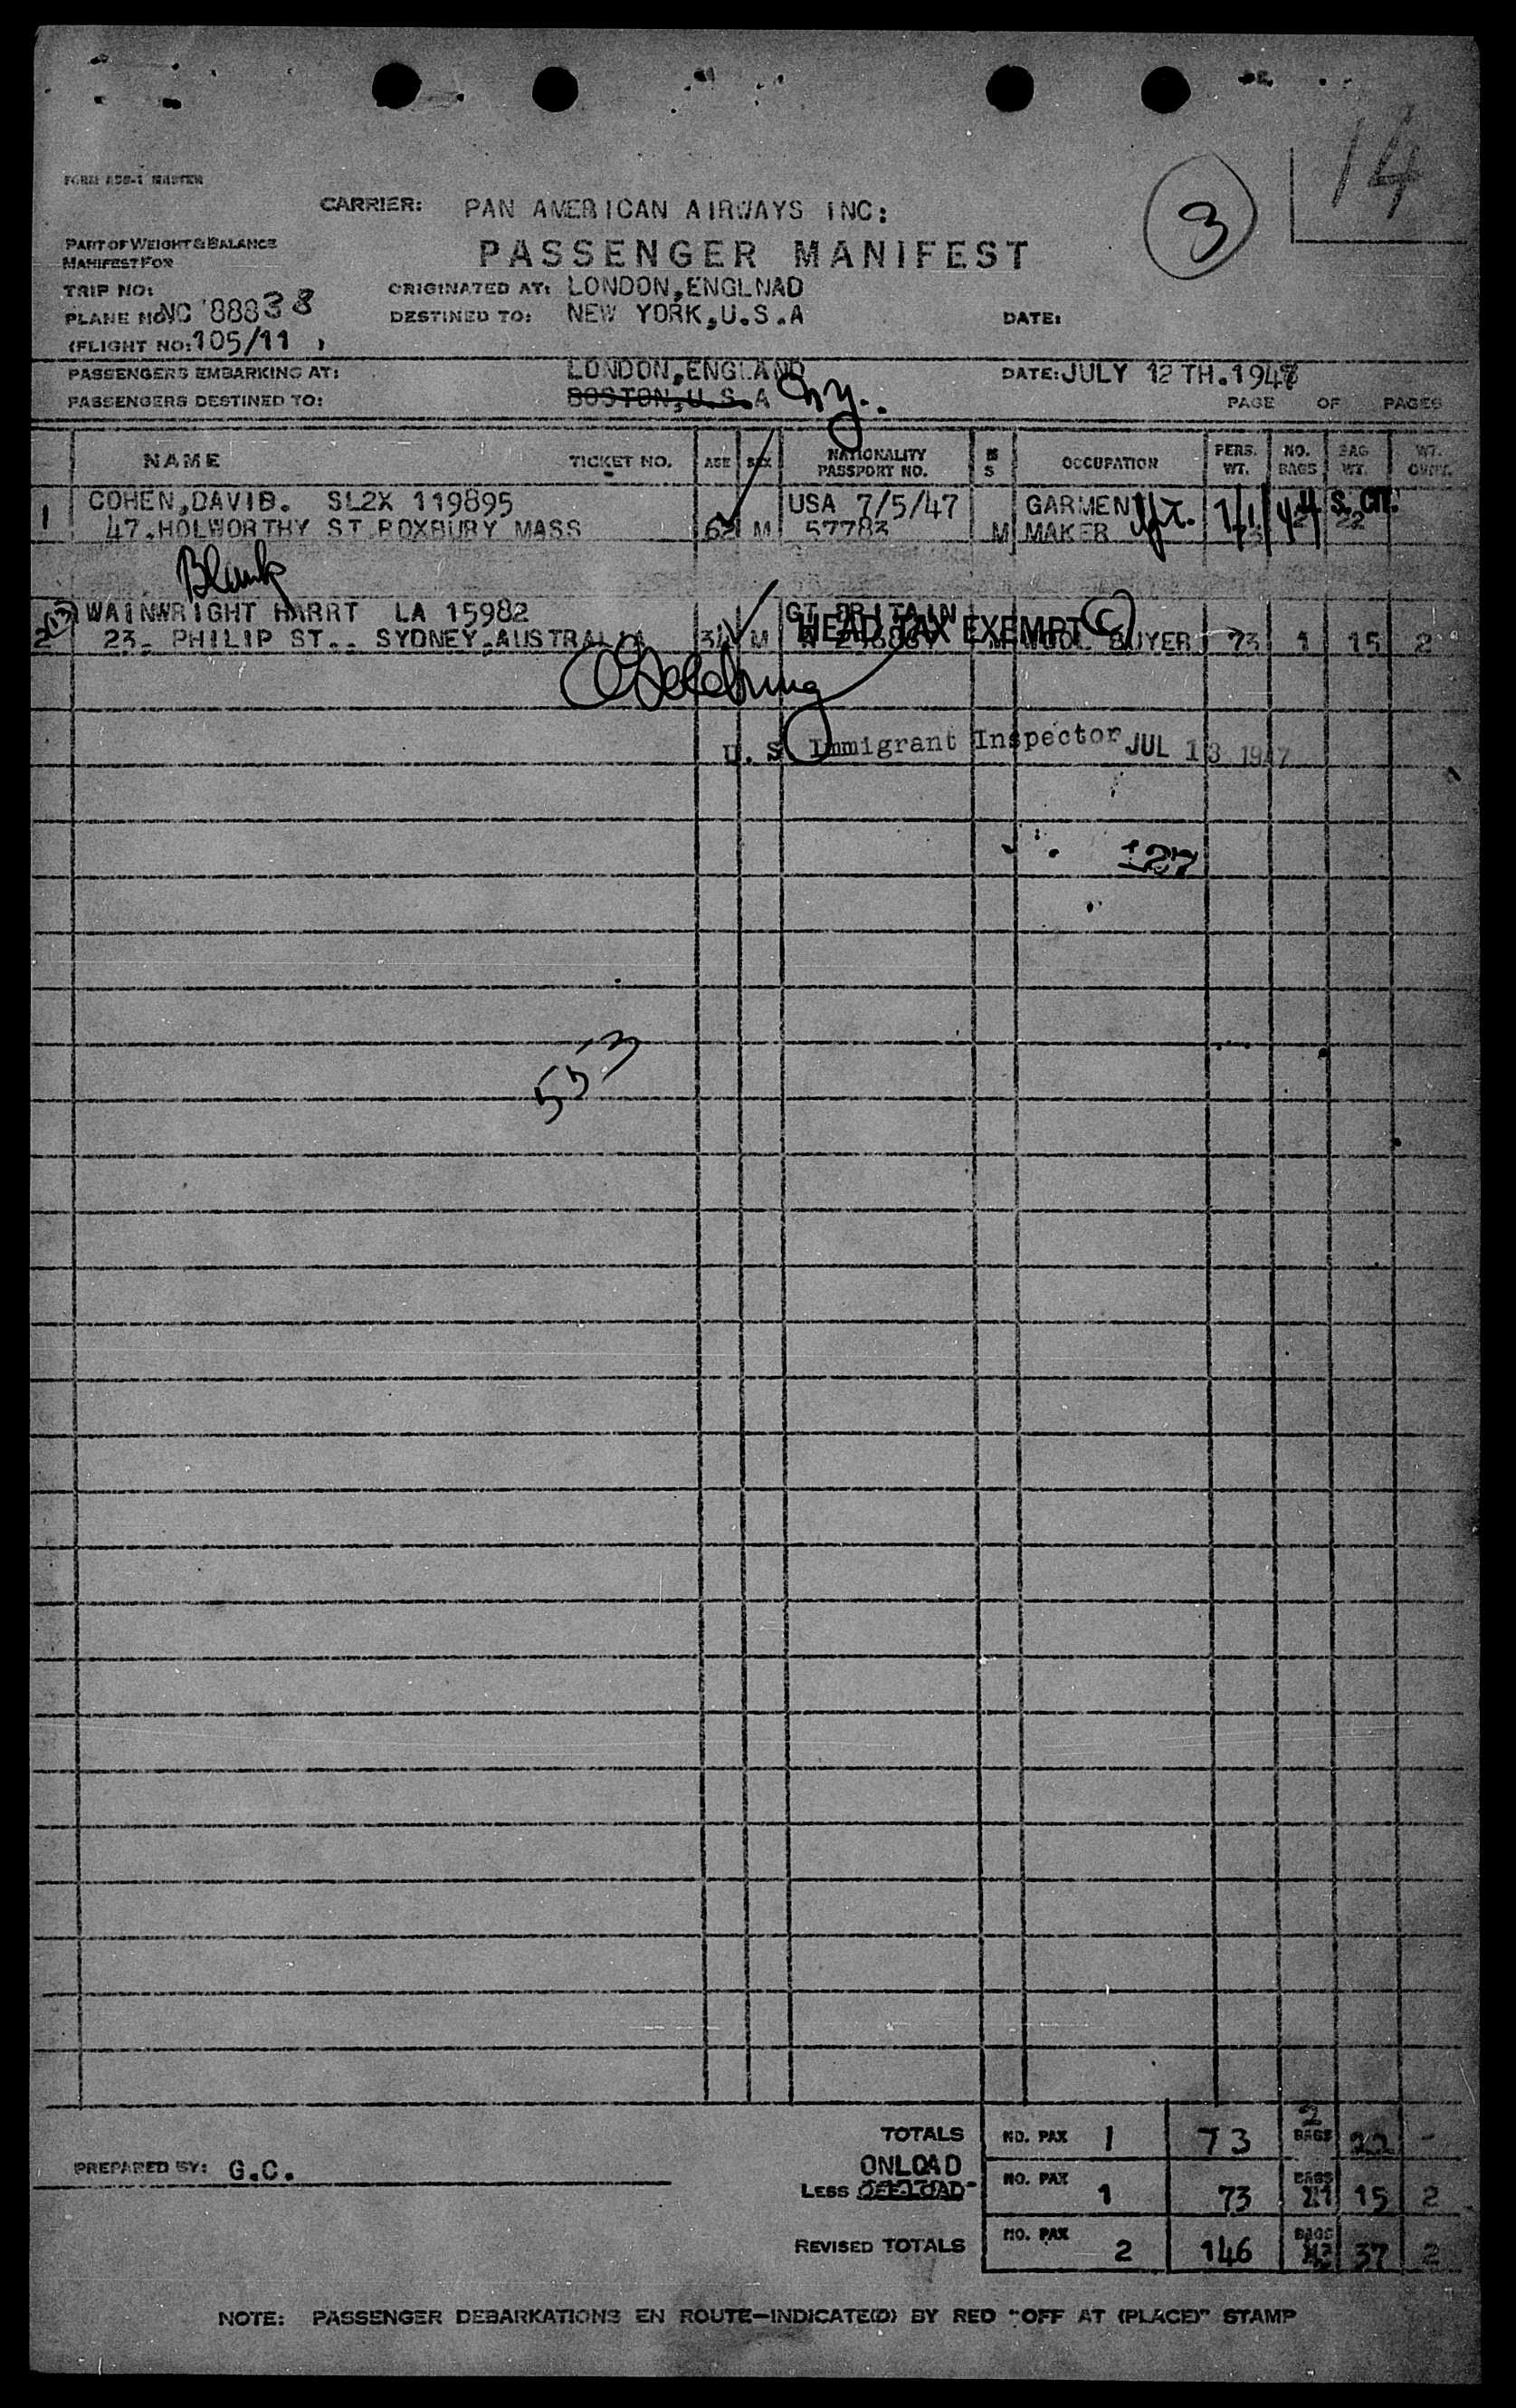 14
3
FORM ADS-1 MASTER
CARRIER: PAN AMERICAN AIRWAYS INC:
PART OF WEIGHT & BALANCE
MANIFEST FOR
PASSENGER MANIFEST
TRIP NO:
ORIGINATED AT: LONDON,ENGLNAD
PLANE NO: NC 88838
DESTINED TO: NEW YORK,U.S.A
DATE:
(FLIGHT NO: 105/11 )
PASSENGERS EMBARKING AT: LONDON,ENGLAND
DATE: JULY 12 TH.1947
PASSENGERS DESTINED TO: BOSTON,U.S.A NY.
PAGE OF PAGES
NAME TICKET NO. AGE SEX NATIONALITY PASSPORT NO. M S OCCUPATION PERS. WT. NO. BAGS BAG WT. WT. OVWT.
1 COHEN,DAVID. SL2X 119895 USA 7/5/47 GARMENT S. CIT.
47.HOLWORTHY ST ROXBURY MASS 62 M 57783 M MAKER 22
Blank
WAINWRIGHT HARRT LA 15982 GT BRITAIN
2 23. PHILIP ST.. SYDNEY,AUSTRALIA 34 M HEAD TAX EXEMPT (C) WOOL BUYER 73 1 15 2
U. S. Immigrant Inspector JUL 13 1947
127
553
TOTALS NO. PAX 1 73 2 BAGS 22 -
PREPARED BY: G.C.
ONLOAD
LESS OFFLOAD NO. PAX 1 73 BAGS 1 15 2
REVISED TOTALS NO. PAX 2 146 BAGS 3 37 2
NOTE: PASSENGER DEBARKATIONS EN ROUTE—INDICATE(D) BY RED "OFF AT (PLACE)" STAMP